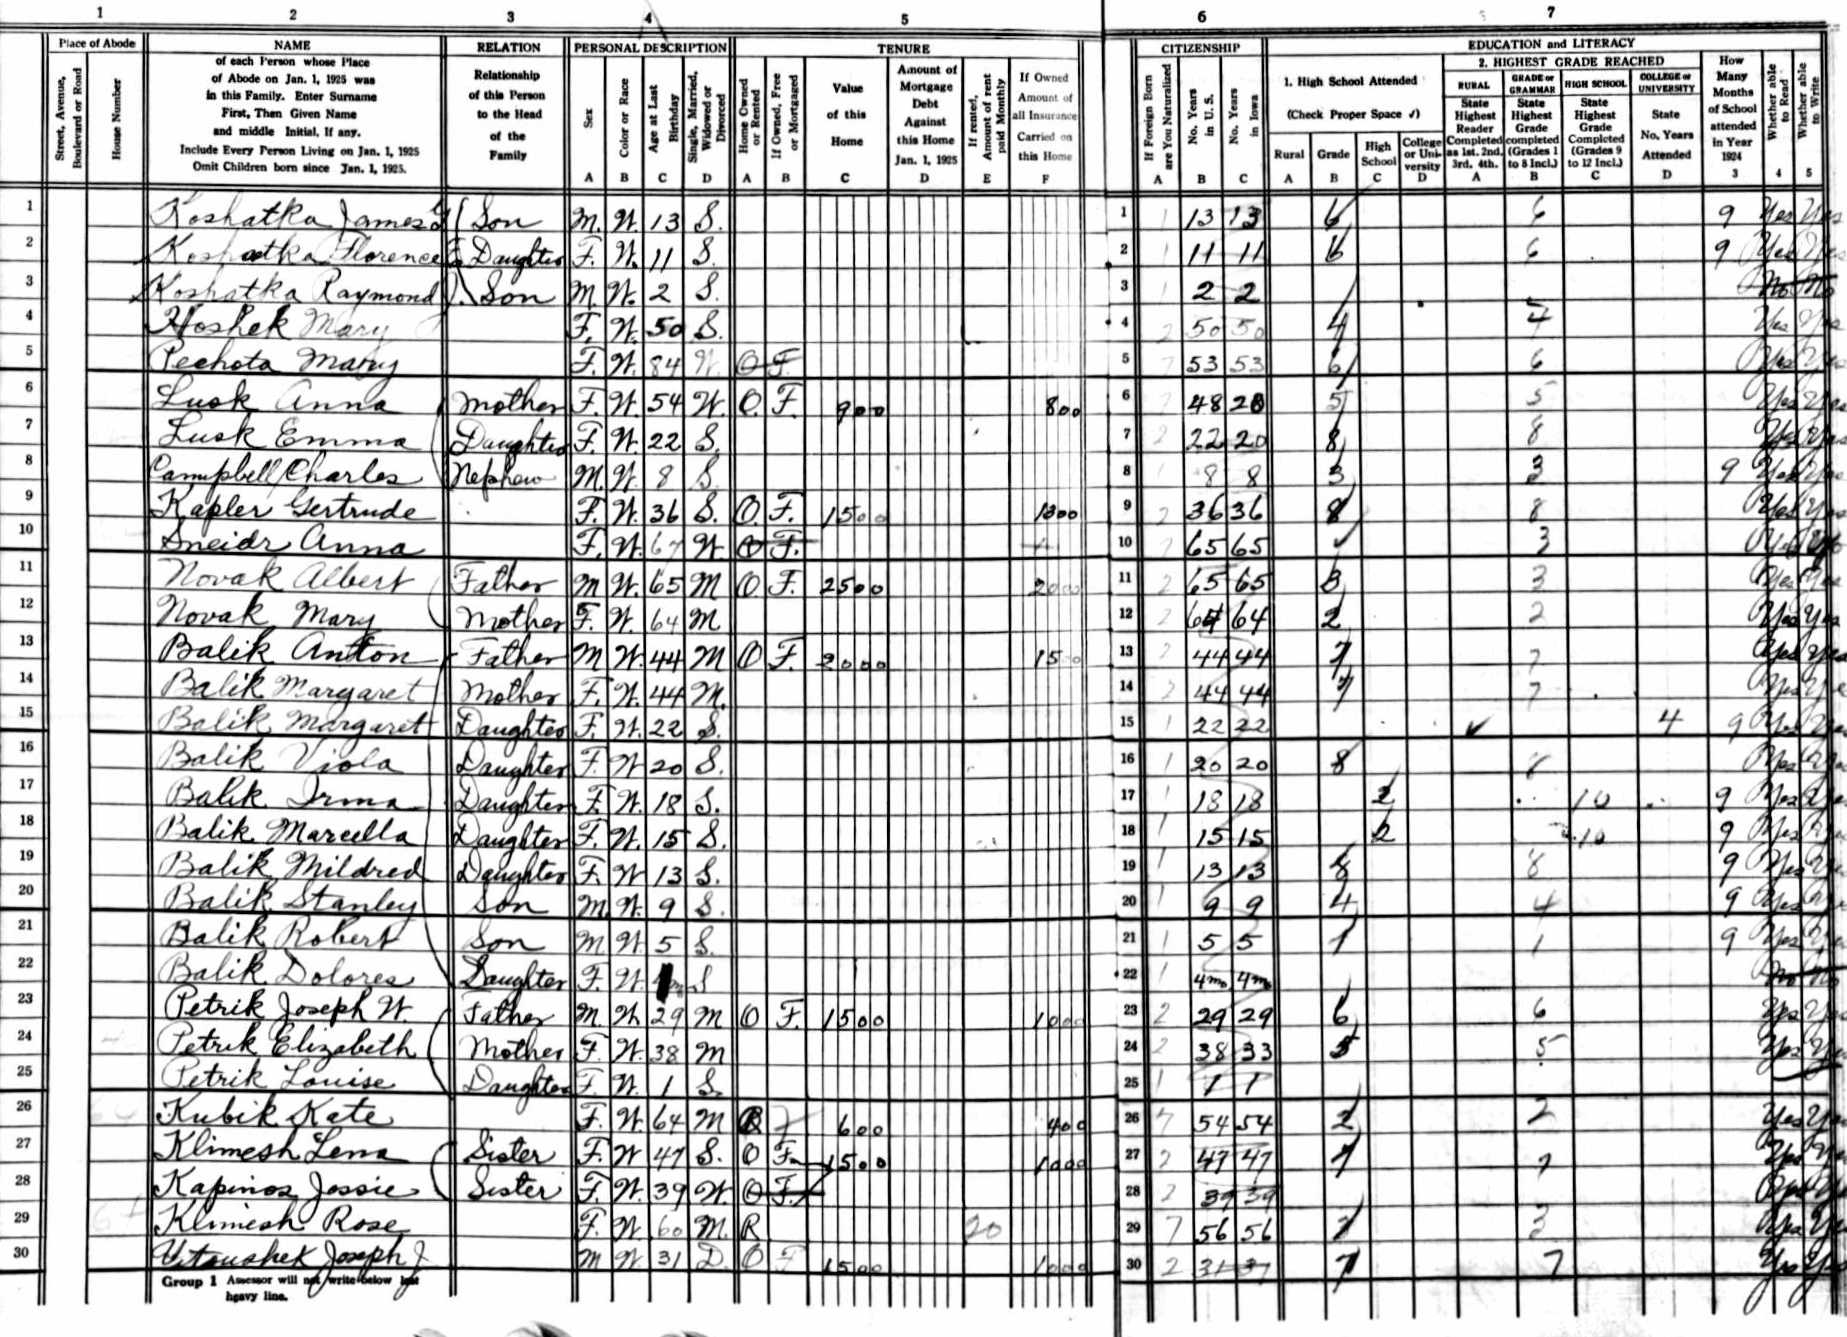 1 2 3 4 5 6 7
Place of Abode
Street, Avenue, Boulevard or Road
House Number
NAME
of each Person whose Place
of Abode on Jan. 1, 1925 was
in this Family. Enter Surname
First, Then Given Name
and middle Initial, if any.
Include Every Person Living on Jan. 1, 1925
Omit Children born since Jan. 1, 1925.
RELATION
Relationship
of this Person
to the Head
of the
Family
PERSONAL DESCRIPTION
Sex A
Color or Race B
Age at Last Birthday C
Single, Married, Widowed or Divorced D
TENURE
Home Owned or Rented A
If Owned, Free or Mortgaged B
Value of this Home C
Amount of Mortgage Debt Against this Home Jan. 1, 1925 D
If rented, Amount of rent paid Monthly E
If Owned Amount of all Insurance Carried on this Home F
CITIZENSHIP
If Foreign Born are You Naturalized A
No. Years in U. S. B
No. Years in Iowa C
EDUCATION and LITERACY
1. High School Attended
(Check Proper Space ✓)
Rural A
Grade B
High School C
College or University D
2. HIGHEST GRADE REACHED
RURAL State Highest Reader Completed as 1st. 2nd. 3rd. 4th. A
GRADE or GRAMMAR State Highest Grade completed (Grades 1 to 8 Incl.) B
HIGH SCHOOL State Highest Grade Completed (Grades 9 to 12 Incl.) C
COLLEGE or UNIVERSITY State No. Years Attended D
How Many Months of School attended in Year 1924 3
Whether able to Read 4
Whether able to Write 5
1 Koshatka James Son M. W. 13 S. 1 1 13 13 6 6 9 Yes Yes
2 Koshatka Florence Daughter F. W. 11 S. 2 1 11 11 6 6 9 Yes Yes
3 Koshatka Raymond J. Son M. W. 2 S. 3 1 2 2 No No
4 Hoshek Mary F. W. 50 S. 4 2 50 50 4 4 Yes Yes
5 Pechota Mary F. W. 84 W. O F. 5 53 53 6 6 Yes Yes
6 Lusk Anna Mother F. W. 54 W. O. F. 900 800 6 48 28 5 5 Yes Yes
7 Lusk Emma Daughter F. W. 22 S. 7 2 22 20 8 8 Yes Yes
8 Campbell Charles Nephew M. W. 8 S. 8 1 8 8 3 3 9 Yes Yes
9 Kapler Gertrude F. W. 36 S. O. F. 1500 1300 9 2 36 36 8 8 Yes Yes
10 Sneidr Anna F. W. 67 W. O F. 10 65 65 3 Yes
11 Novak Albert Father M W. 65 M O F. 2500 2000 11 2 65 65 3 3 Yes Yes
12 Novak Mary Mother F. W. 64 M 12 2 64 64 2 2 Yes Yes
13 Balik Anton Father M W. 44 M O F. 2000 13 2 44 44 7 7 Yes Yes
14 Balik Margaret Mother F. W. 44 M. 14 2 44 44 7 7 Yes Yes
15 Balik Margaret Daughter F. W. 22 S. 15 1 22 22 ✓ 4 9 Yes Yes
16 Balik Viola Daughter F. W 20 S. 16 1 20 20 8 8 Yes Yes
17 Balik Irma Daughter F. W. 18 S. 17 1 18 18 2 10 9 Yes Yes
18 Balik Marcella Daughter F. W. 15 S. 18 1 15 15 2 10 9 Yes Yes
19 Balik Mildred Daughter F. W 13 S. 19 1 13 13 8 8 9 Yes Yes
20 Balik Stanley Son M. W. 9 S. 20 1 9 9 4 4 9 Yes Yes
21 Balik Robert Son M W. 5 S. 21 1 5 5 1 1 9 Yes Yes
22 Balik Dolores Daughter F. W. S 22 1 4m 4m No No
23 Petrik Joseph W. Father M. W. 29 M O F. 1500 1000 23 2 29 29 6 6 Yes Yes
24 Petrik Elizabeth Mother F. W. 38 M 24 2 38 33 5 5 Yes Yes
25 Petrik Louise Daughter F. W. 1 S. 25 1 1 1
26 Kubik Kate F. W. 64 M R 600 400 26 54 54 2 2 Yes Yes
27 Klimesh Lena Sister F. W 47 S. O F. 1500 1000 27 2 47 47 7 7 Yes Yes
28 Kapinos Jessie Sister F. W. 39 W. O F. 28 2 39 39 Yes Yes
29 Klimesh Rose F. W 60 M. R 20 29 7 56 56 3 Yes Yes
30 Joseph J. M W. 31 D. O F 1500 1000 30 2 31 7 7 Yes Yes
Group 1 Assessor will not write below last
heavy line.